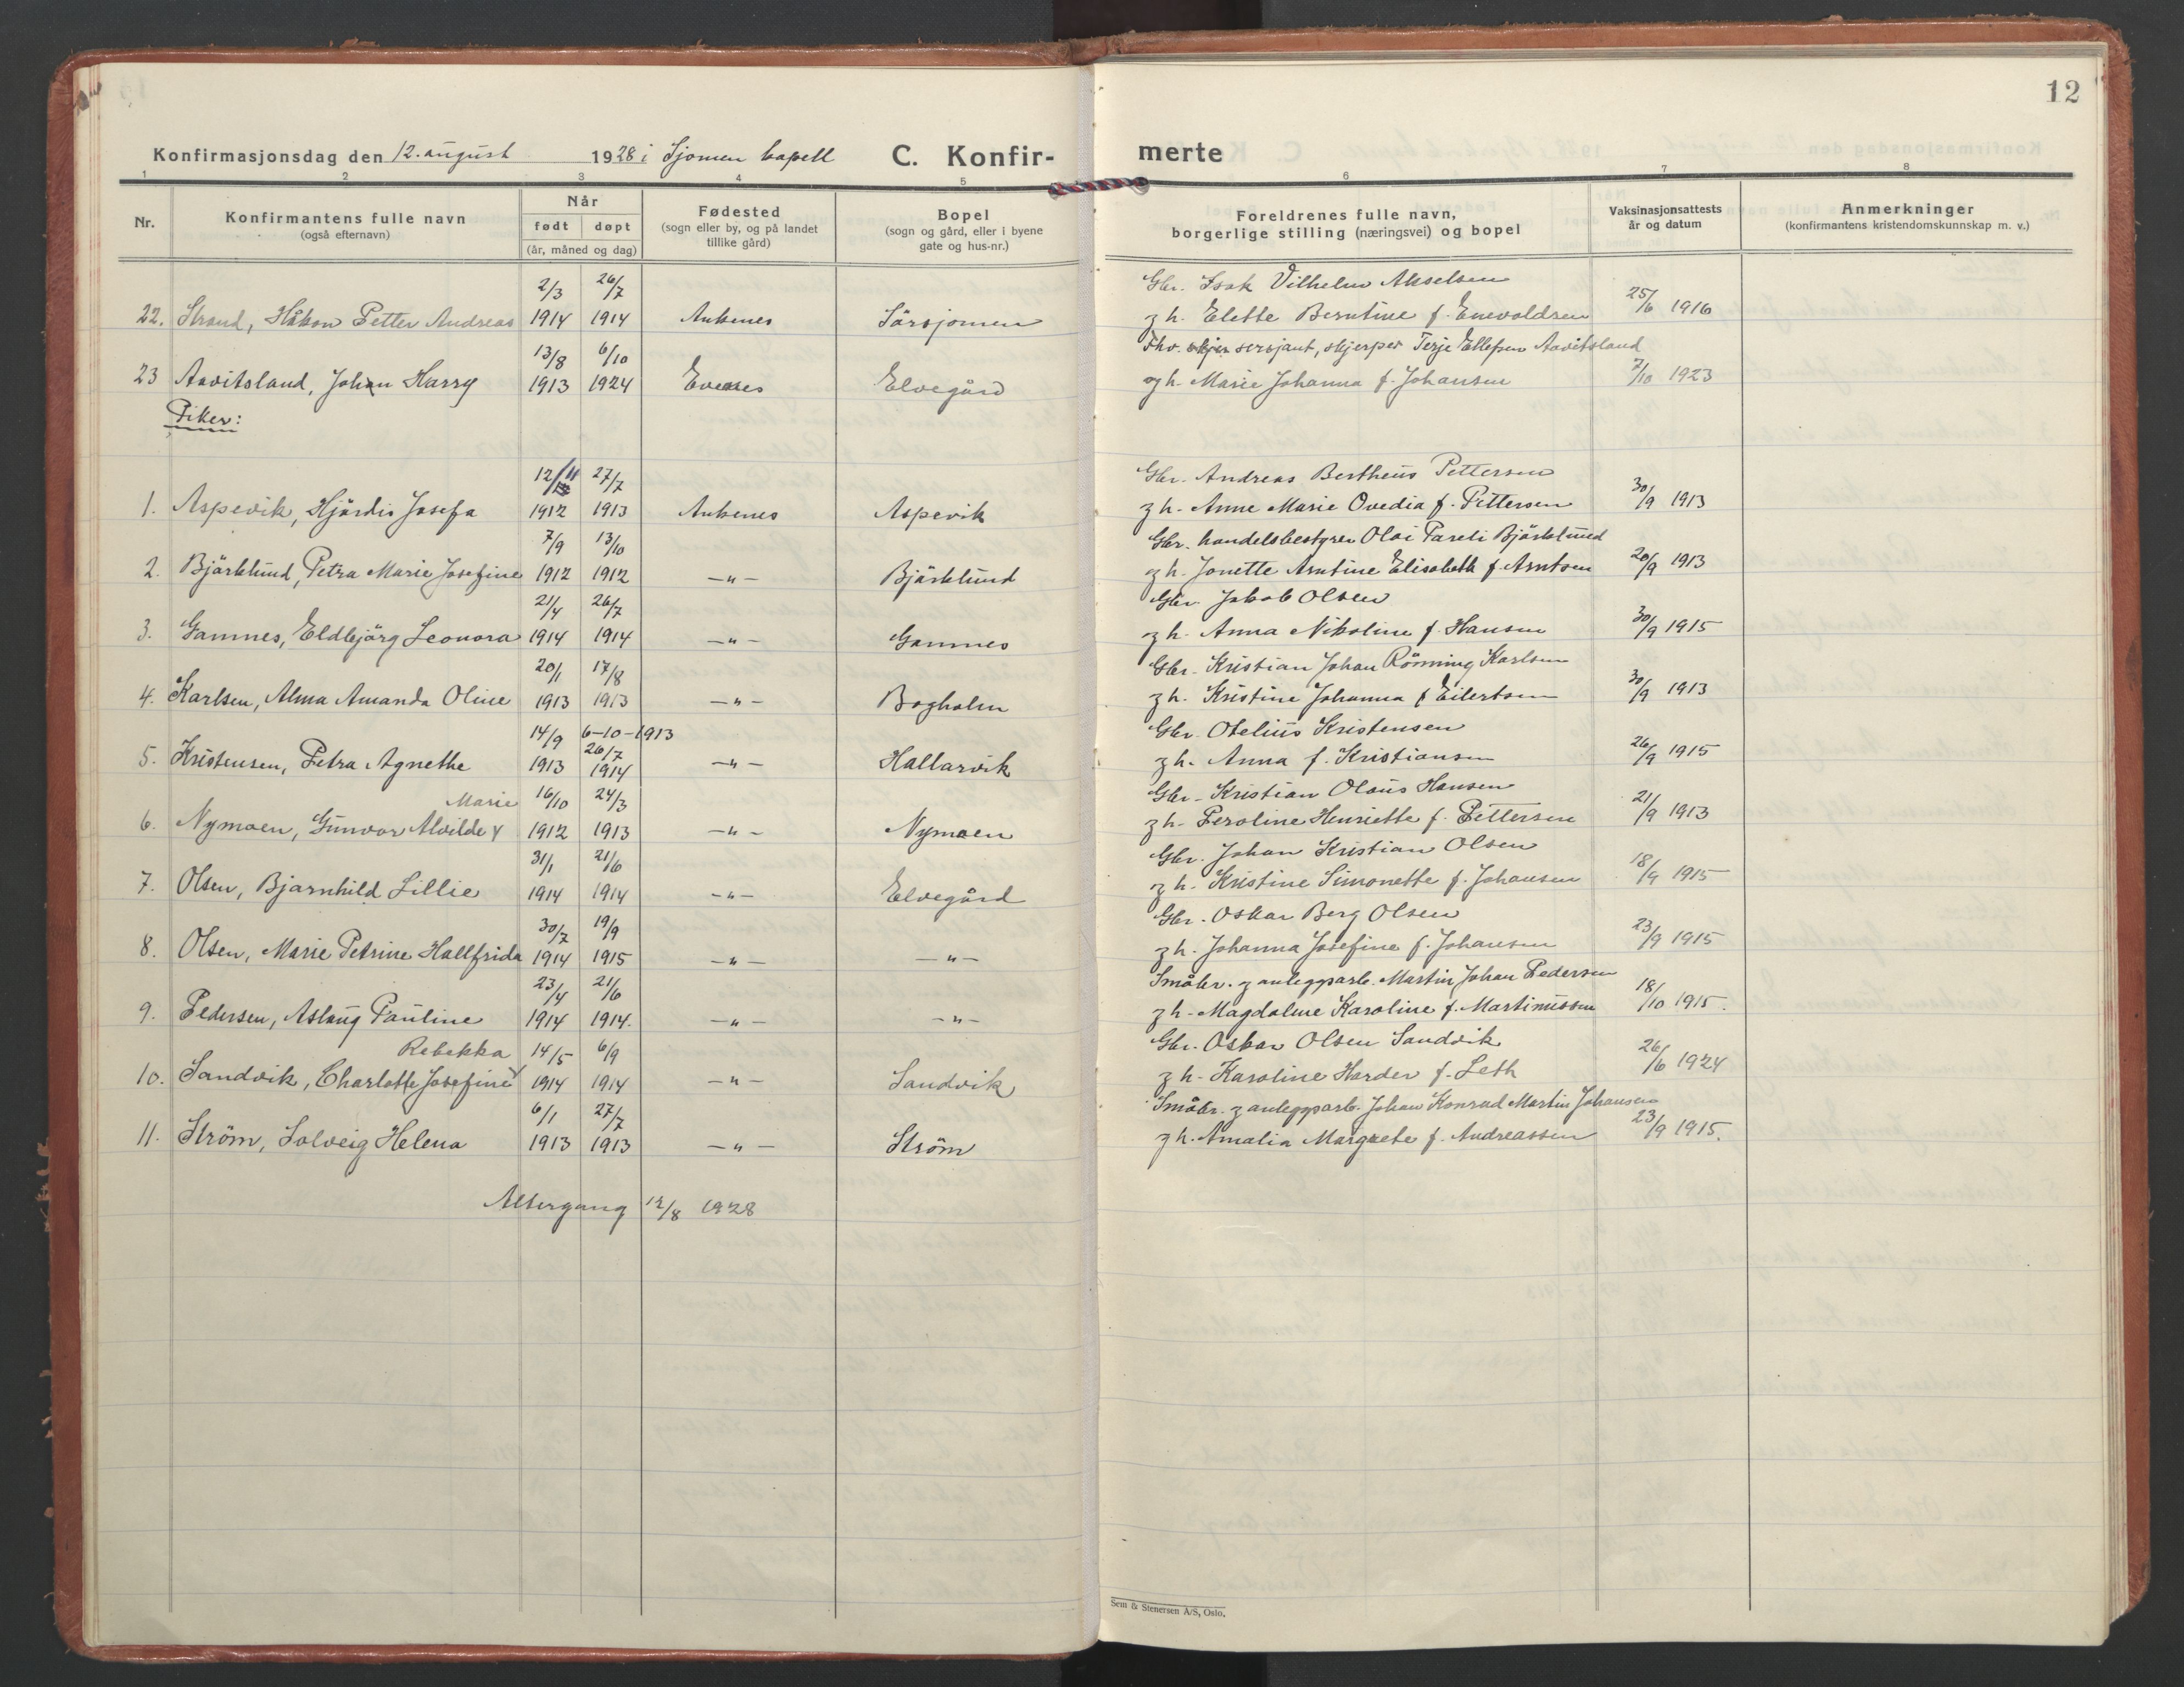 12
Konfirmasjonsdag den 12. august 1928 i Sjomen kapell C. Konfir- merte
1 2 3 4 5 6 7 8
Nr. Konfirmantens fulle navn (også efternavn) Når født døpt (år, måned og dag) Fødested (sogn eller by, og på landet tillike gård) Bopel (sogn og gård, eller i byene gate og hus-nr.) Foreldrenes fulle navn, borgerlige stilling (næringsvei) og bopel Vaksinasjonsattests år og datum Anmerkninger (konfirmantens kristendomskunnskap m. v.)
2/3 26/7 Gbr. Isak Vilhelm Akselsen
22. Strand, Håkon Petter Andreas 1914 1914 Ankenes Sörsjomen g h. Elette Berntine f. Enevoldsen 25/6 1916
13/8 6/10 Fhv. sersjant, skjerper Terje Ellefsen Aavitsland
23 Aavitsland, Johan Harry 1913 1924 Evenes Elvegård og h. Marie Johanna f. Johansen 7/10 1923
Piker:
12/11 27/7 Gbr. Andreas Bertheus Pettersen
1. Aspevik, Hjördis Josefa 1912 1913 Ankenes Aspevik g h. Anne Marie Ovedia f. Pettersen 30/9 1913
7/9 13/10 Gbr. handelsbestyrer Olai Pareli Björklund
2. Björklund, Petra Marie Josefine 1912 1912 —"— Björklund og h. Jonette Arntine Elisabeth f. Arntsen 20/9 1913
21/4 26/7 Gbr. Jakob Olsen
3. Gamnes, Eldbjörg Leonora 1914 1914 —"— Gamnes g h. Anna Nikoline f. Hansen 30/9 1915
20/1 17/8 Gbr. Kristian Johan Rönning Karlsen
4. Karlsen, Alma Amanda Oline 1913 1913 —"— Bogholm g h. Kristine Johanna f Eilertsen 30/9 1913
14/9 6-10-1913 26/7 Gbr. Otelius Kristensen
5. Kristensen, Petra Agnethe 1913 1914 —"— Hallarvik g h. Anna f. Kristiansen 26/9 1915
Marie 16/10 24/3 Gbr. Kristian Olaus Hansen
6. Nymoen, Gunvor Alvilde 1912 1913 —"— Nymoen g h. Peroline Henriette f. Pettersen 21/9 1913
31/1 21/6 Gbr. Johan Kristian Olsen
7. Olsen, Bjarnhild Lillie 1914 1914 —"— Elvegård g h. Kristine Simonette f. Johansen 18/9 1915
30/7 19/9 Gbr. Oskar Berg Olsen
8. Olsen, Marie Petrine Hallfrida 1914 1915 —"— —"— g h. Johanna Josefine f. Johansen 23/9 1915
23/4 21/6 Småbr. g anleggsarb. Martin Johan Pedersen
9. Pedersen, Aslaug Pauline 1914 1914. —"— —"— g h. Magdalene Karoline f. Martinussen 18/10 1915.
Rebekka 14/5 6/9 Gbr. Oskar Olsen Sandvik
10. Sandvik, Charlotte Josefine 1914 1914 —"— Sandvik g h. Karoline Harder f. Leth 26/6 1924
6/1 27/7 Småbr. g anleggsarb. Johan Konrad Martin Johansen
11. Ström, Solveig Helena 1913 1913 —"— Ström g h. Amalia Margrete f. Andreassen 23/9 1915.
Altergang 12/8 1928
Sem & Stenersen A/S, Oslo.